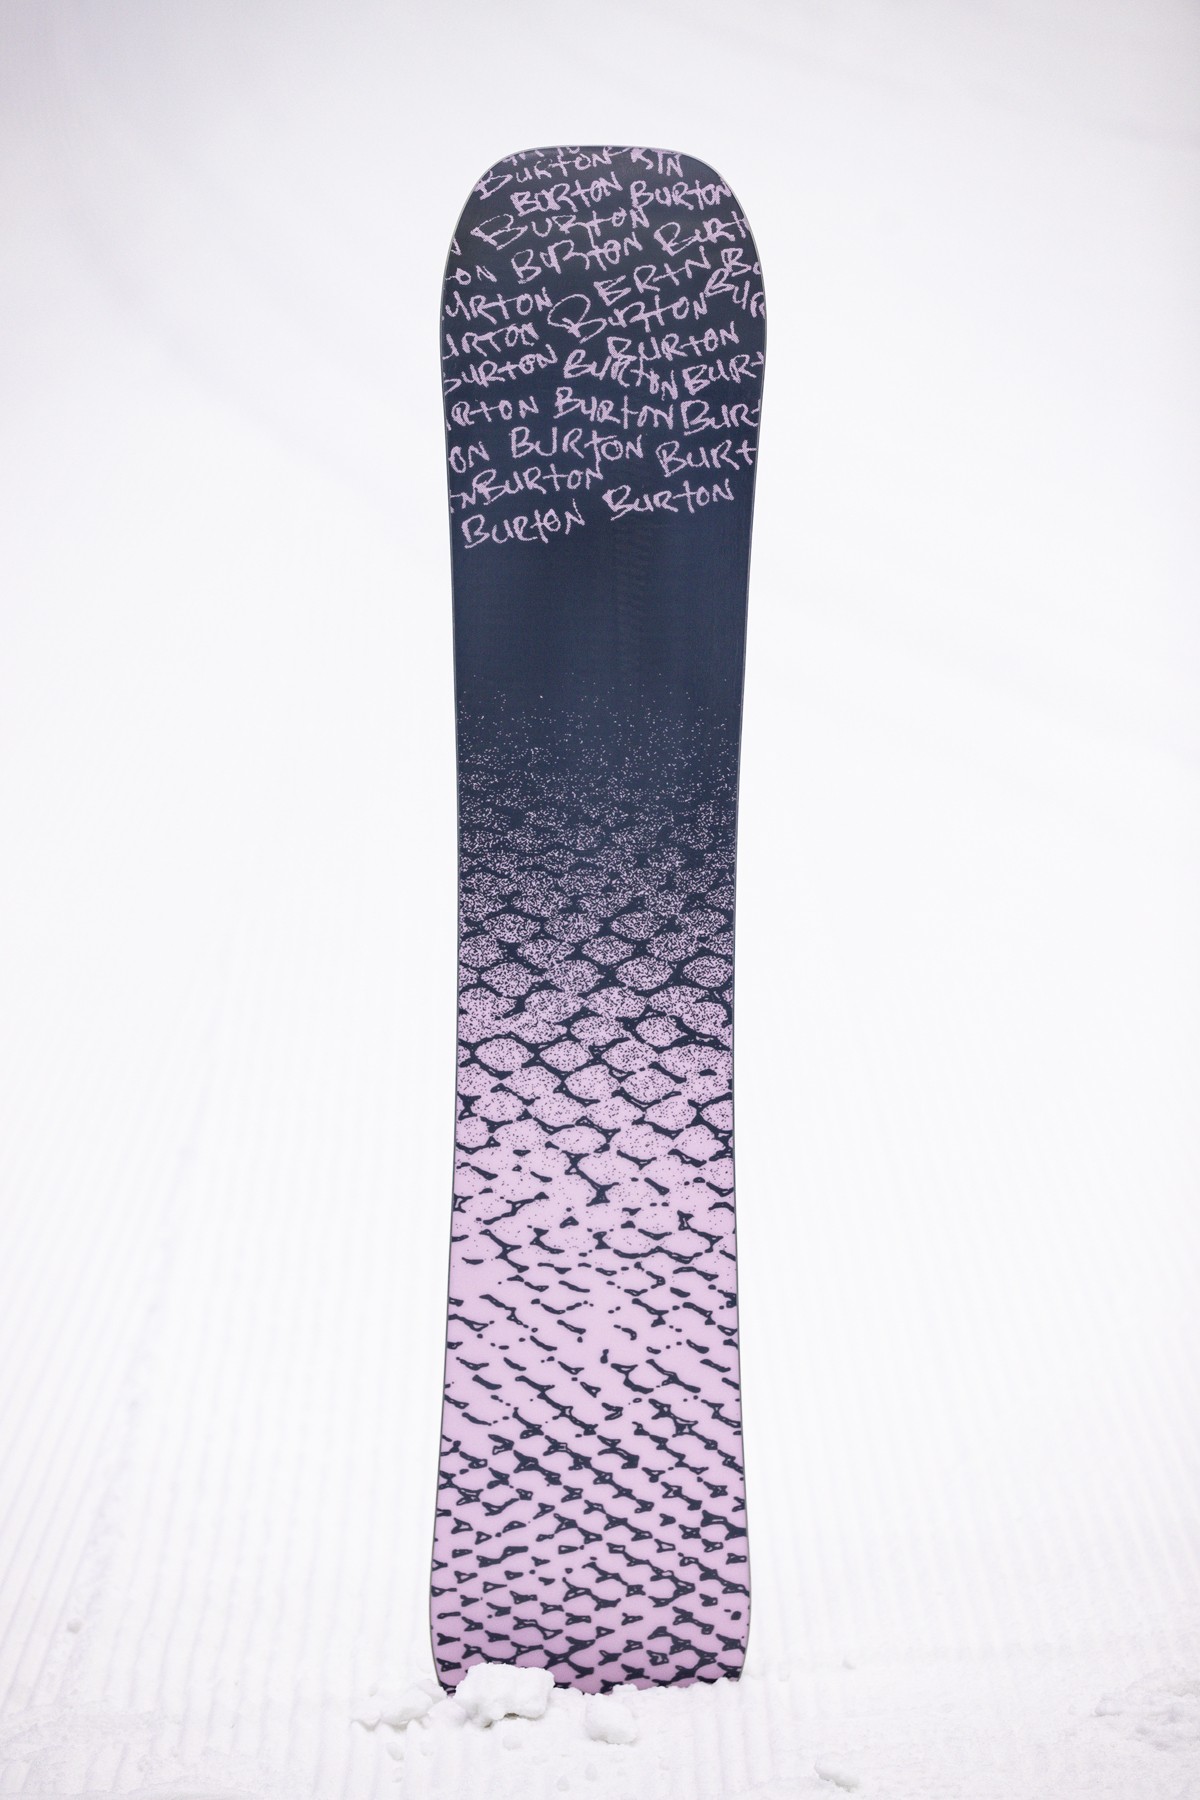 BURTON
BURTON BURTON
BURTON BURT
ON BURTON
BRTN
URTON BURTON BUR
URTON BURTON
BURTON BURTON BURT
RTON BURTON BURT
ON BURTON BURT
TN BURTON
BURTON BURTON